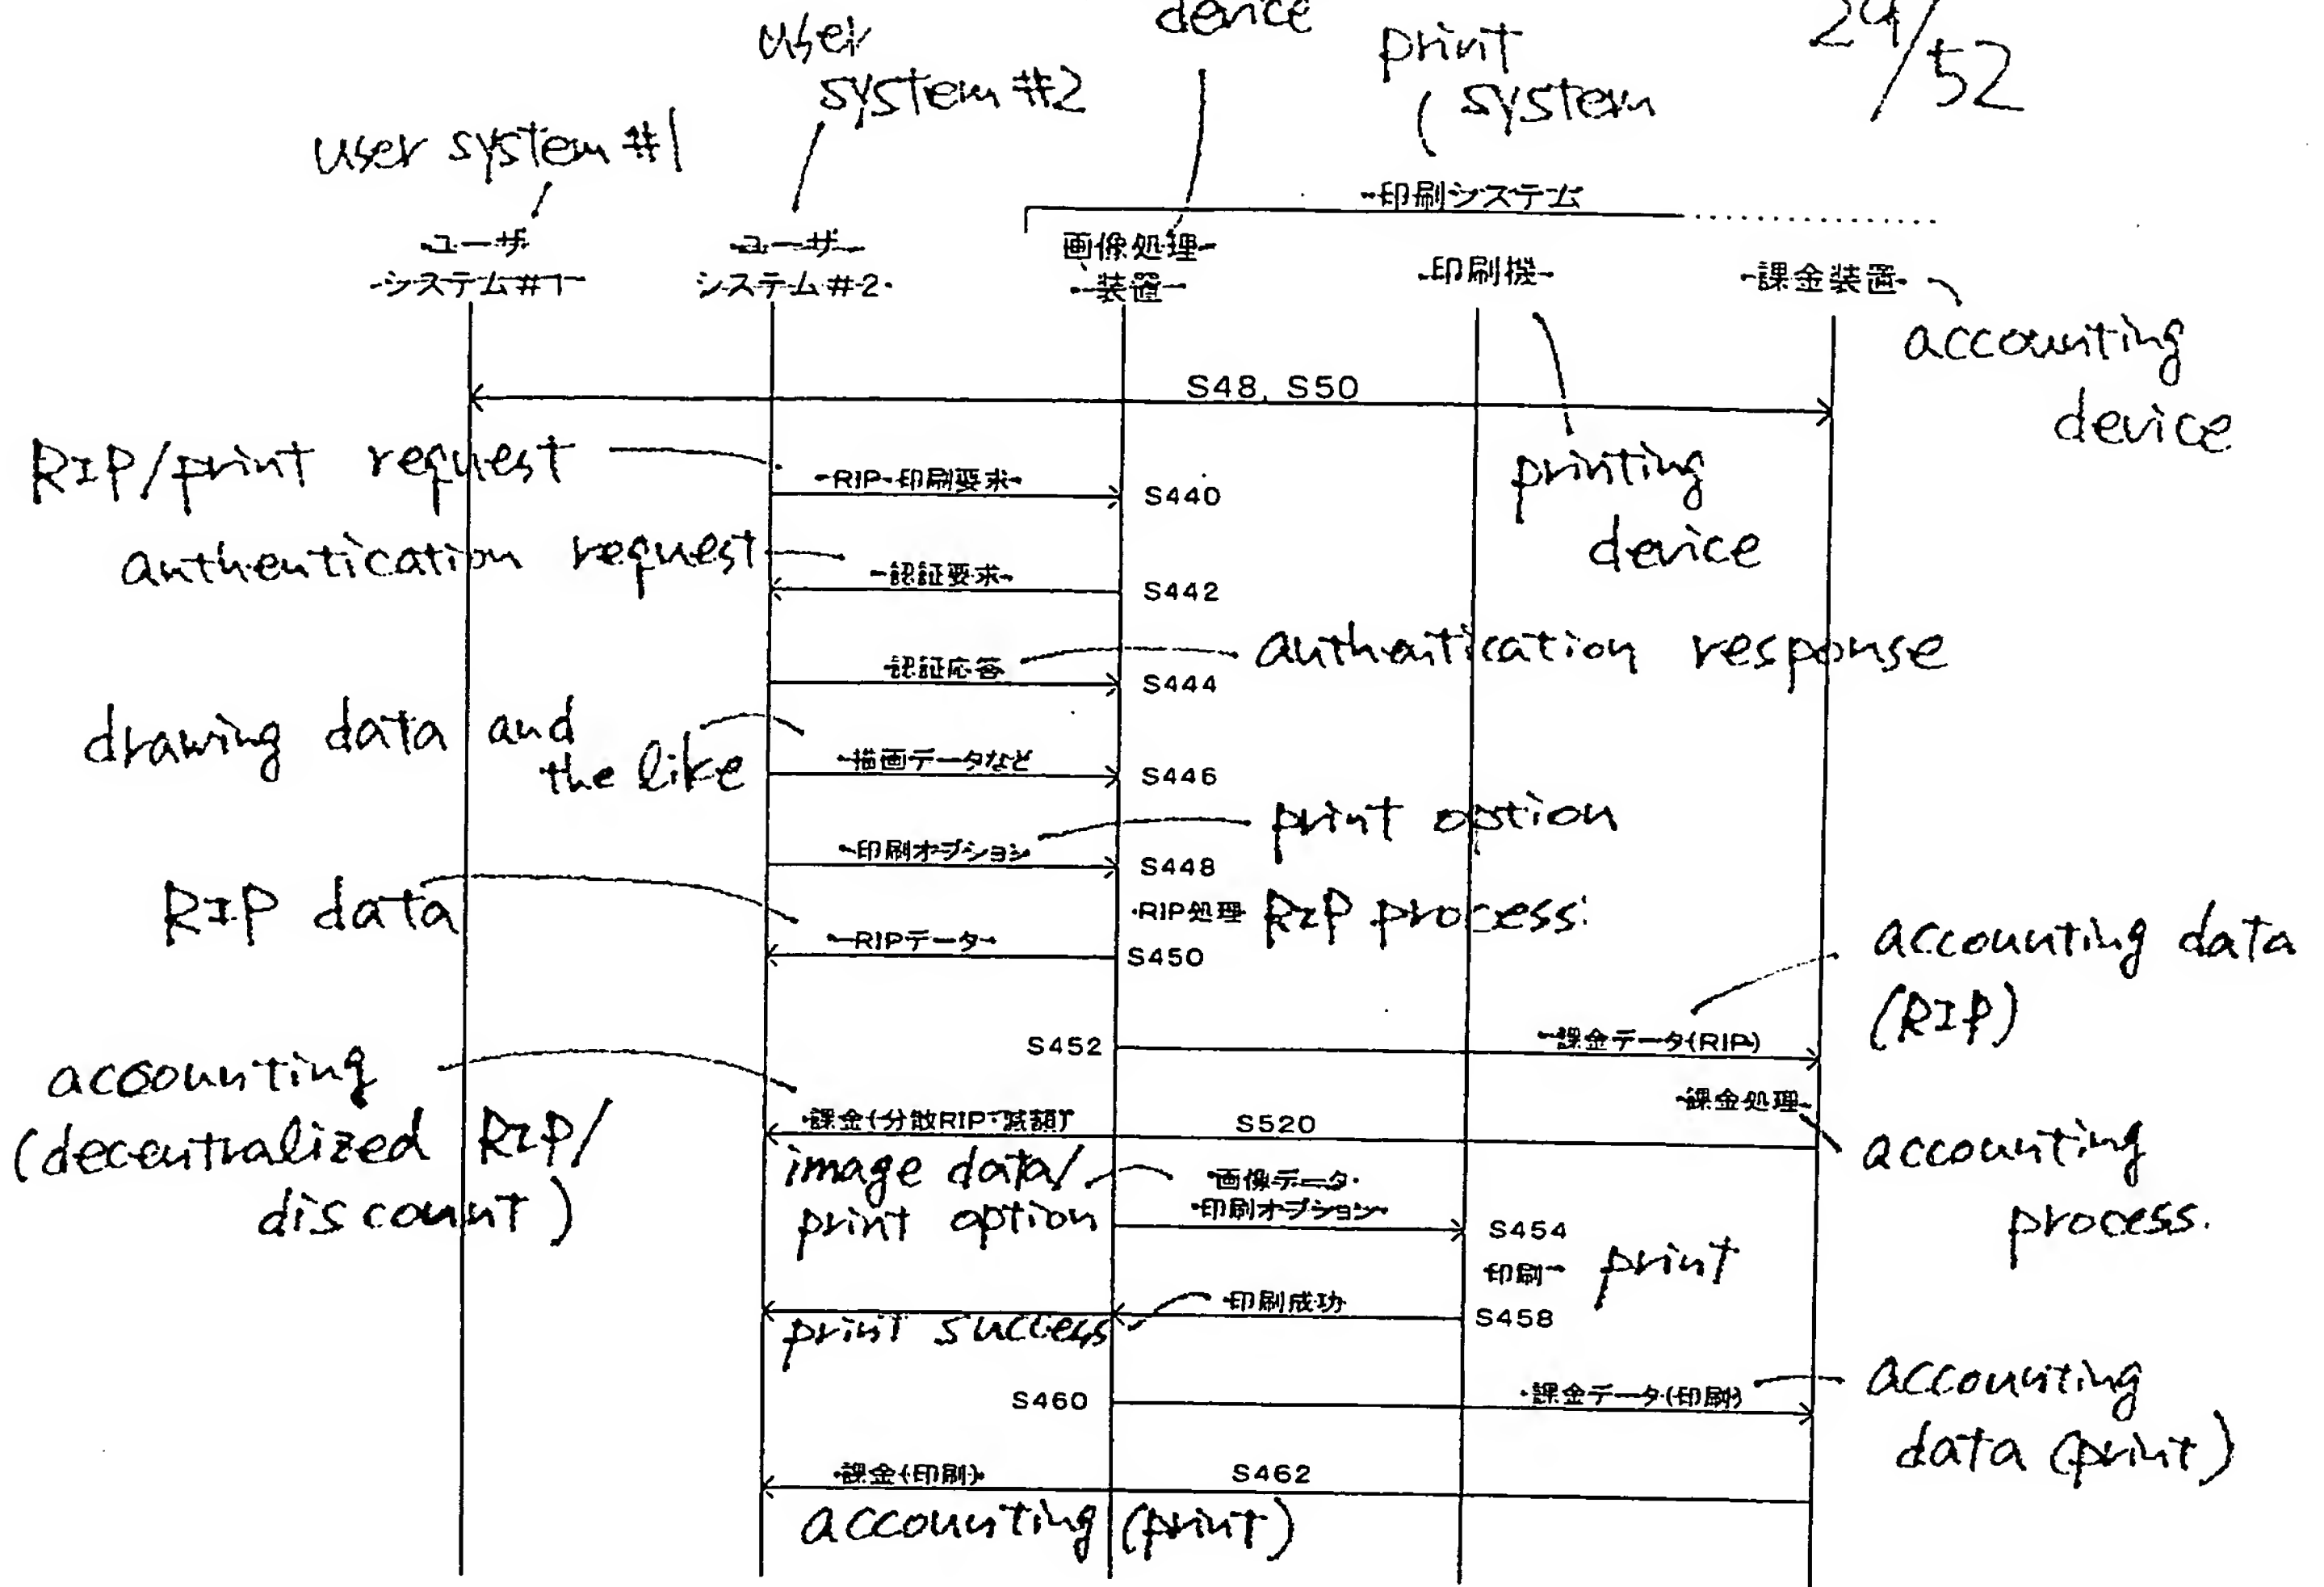 device
29/52
user
system #2
print
system
user system #1
印刷システム
ユーザ
システム#1
ユーザ
システム#2
画像処理
装置
印刷機
課金装置
accounting
device
S48, S50
RIP/print request
RIP・印刷要求
S440
printing
device
authentication request
認証要求
S442
認証応答
S444
authentication response
drawing data and
the like
描画データなど
S446
print option
印刷オプション
S448
RIP data
RIP処理
RIP process
RIPデータ
S450
accounting data
(RIP)
S452
課金データ(RIP)
accounting
(decentralized RIP/
discount)
課金処理
accounting
process.
課金(分散RIP・減額)
S520
image data/
print option
画像データ・
印刷オプション
S454
印刷
print
印刷成功
S458
print success
S460
課金データ(印刷)
accounting
data (print)
課金(印刷)
S462
accounting (print)